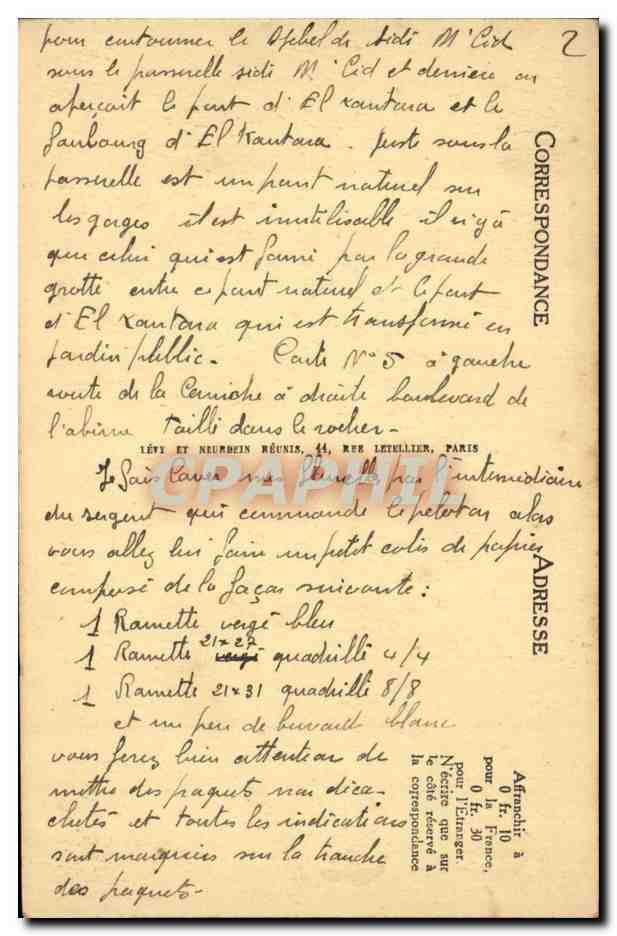 2
pour contourner le Djebel de Sidi M'Cid
sous la passerelle sidi M'Cid et derrière on
aperçoit le pont d'El Kantara et le
faubourg d'El Kantara. Juste sous la
passerelle est un pont naturel sur
les gorges il est inutilisable il n'y a
que celui qui est formé par la grande
grotte entre ce pont naturel et le pont
d'El Kantara qui est transformé en
jardin public. Carte N° 5 à gauche
route de la Corniche à droite boulevard de
l'abîme taillé dans le rocher.
LÉVY ET NEURDEIN RÉUNIS, 44, RUE LETELLIER, PARIS
CPAPHIL
Je fais laver mes flanelles par l'intermédiaire
du sergent qui commande le peloton alors
vous allez lui faire un petit colis de papier
composé de la façon suivante :
1 Ramette vergé bleu
1 Ramette 21×27 vergé quadrillé 4/4
1 Ramette 21×31 quadrillé 8/8
et un peu de buvard blanc
vous ferez bien attention de
mettre des paquets non déca-
chetés et toutes les indications
sont marquées sur la tranche
des paquets.
CORRESPONDANCE
ADRESSE
Affranchir à
0 fr. 10
pour la France,
0 fr. 30
pour l'Etranger.
N'écrire que sur
le côté réservé à
la correspondance